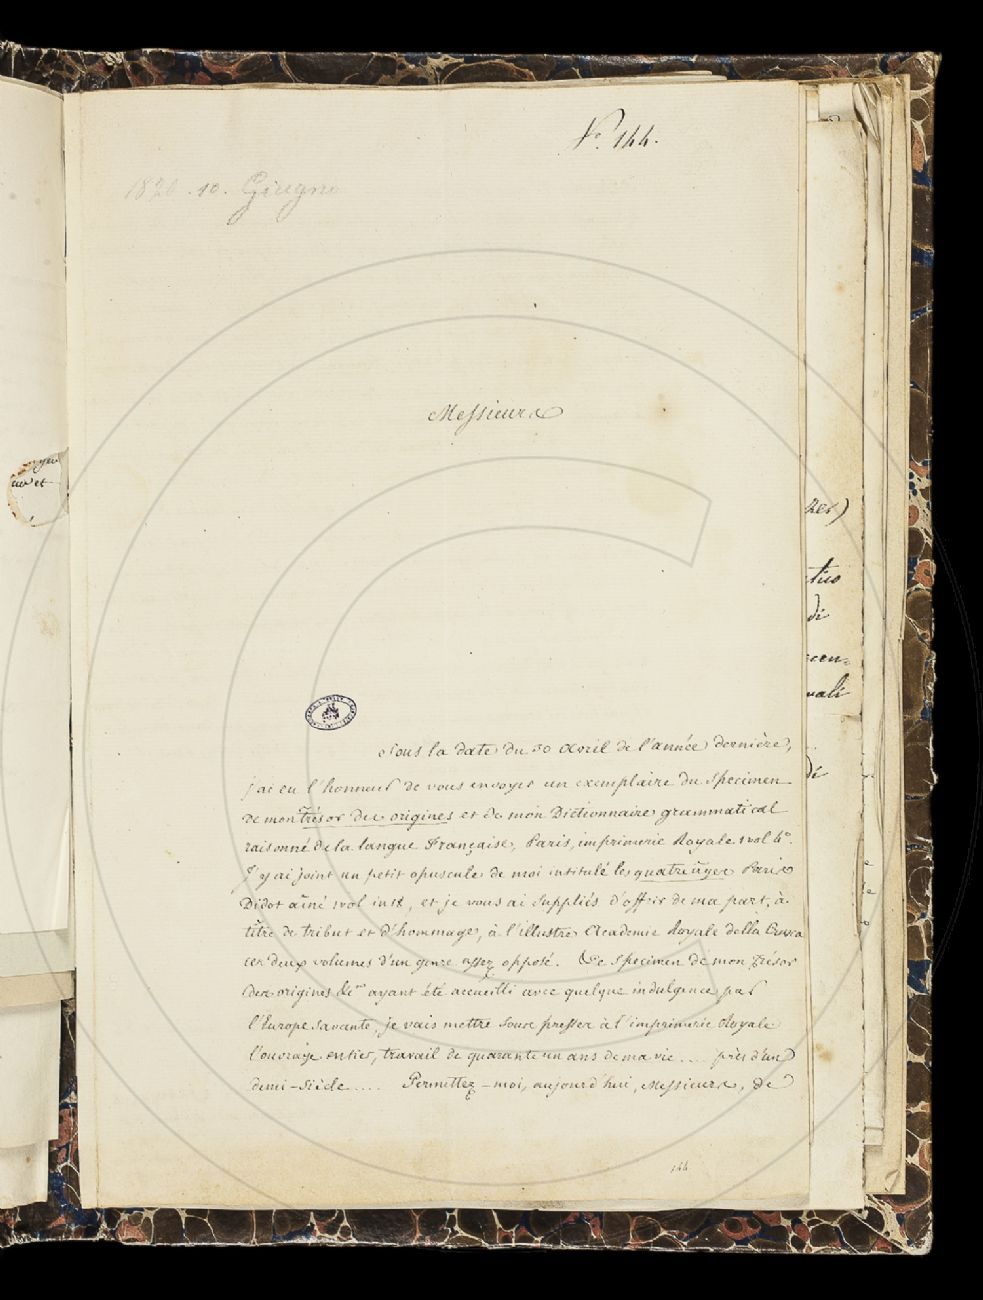 N.º 144.
1826. 10. Giugno
Messieurs
Sous la date du 30 Avril de l'année dernière,
j'ai eu l'honneur de vous envoyer un exemplaire du Specimen
de mon trésor des origines et de mon Dictionnaire grammatical
raisonné de la langue Française, Paris, imprimerie Royale 1 vol 4.º
J'y ai joint un petit opuscule de moi intitulé les quatre âges Paris
Didot aîné 1 vol in 18, et je vous ai suppliés d'offrir de ma part, à
titre de tribut et d'hommage, à l'illustre Academie Royale della Crusca
ces deux volumes d'un genre assez opposé. Le Specimen de mon trésor
des origines &c ayant été accueilli avec quelque indulgence par
l'Europe Savante, je vais mettre sous presse à l'imprimerie Royale
l'ouvrage entier, travail de quarante un ans de ma vie .... près d'un
demi-Siècle .... Permettez-moi, aujourd'hui, Messieurs, de
144
et
di
vali
di